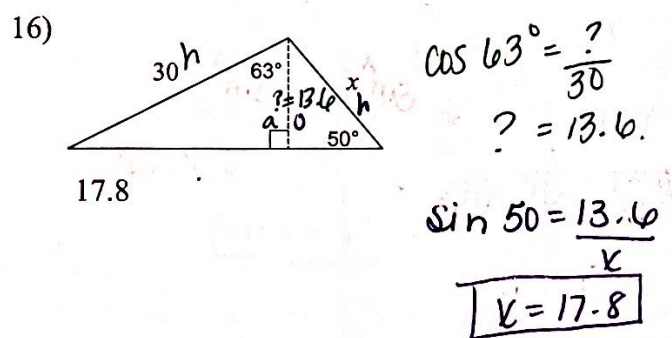 16)
30 h
63°
x
h
?=13.6
a
o
50°
17.8
cos 63° = ?/30
? = 13.6.
sin 50 = 13.6/x
x = 17.8